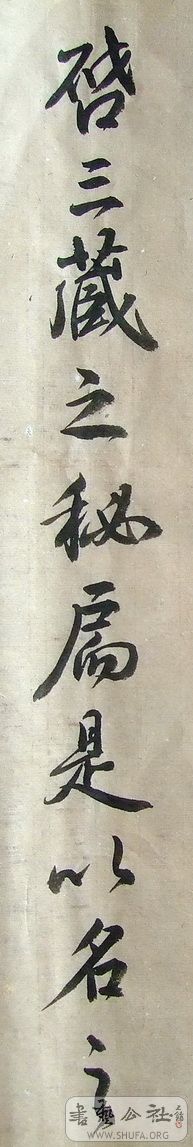 啓三藏之秘扃是以名之
書藝公社
WWW.SHUFA.ORG